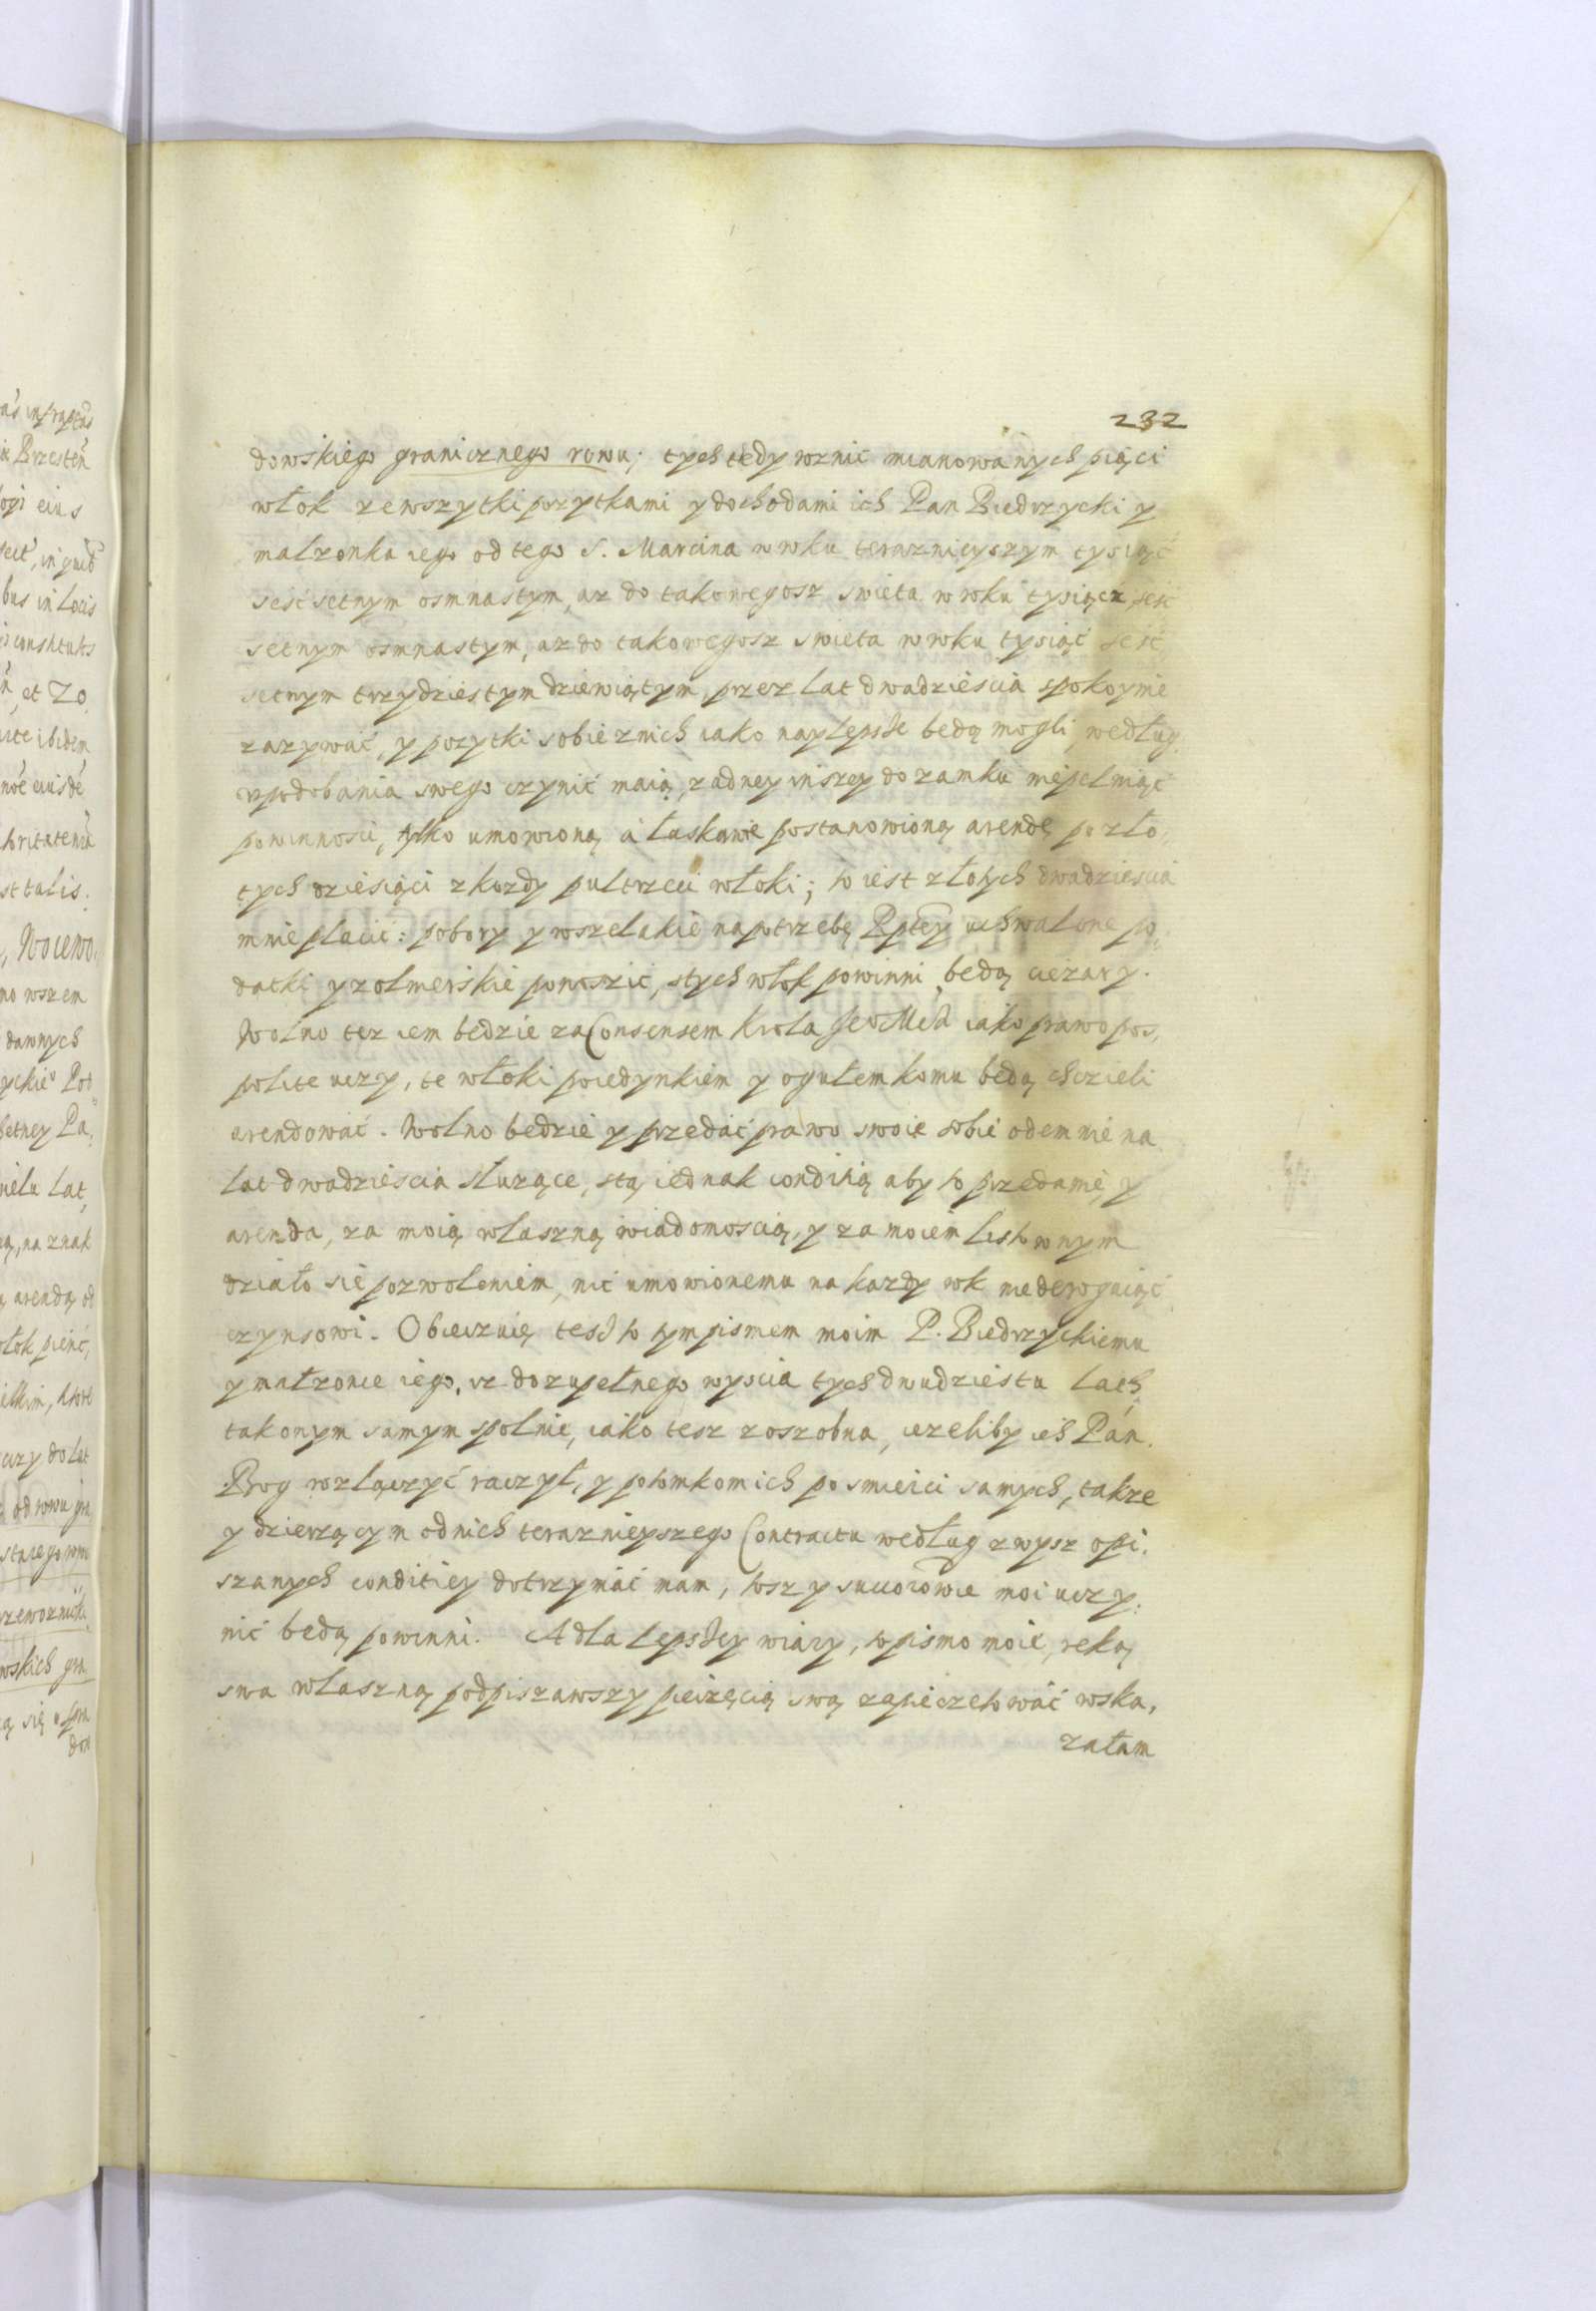 232
dowskiego granicznego rowu; tych tedy wznić mianowanych piąci
włok zewszytki pozytkami y dochodami ich Pan Biedrzycki y
malzonka iego od tego S. Marcina w roku teraznieyszym tysiąć
sesć setnym osmnastym, az do takowegosz swieta w roku tysiącz sesć
setnym osmnastym, az do takowegosz swieta w roku tysiąć sesć
setnym trzydziestym dziewiątym, przez lat dwadziescia spokoynie
zazywać, y pozytki sobie znich iako naylepsze bedą mogli, według
upodobania swego czynić maią, zadney inszey do zamku niepelniąć
powinnosci, tylko umowioną a łaskawie postanowioną arendę po zło,
tych dziesiąci z kozdy pultrzeci włoki; to iest złotych dwadziescia
mnie placić: pobory y wszelakie napotrzebę Rptey uchwalone po,
datki y zolnierskie ponoszić, stych włok powinni bedą ciezary.
Wolno tez iem bedzie za Consensem Krola Jeo Mci iako prawo pos,
polite uczy, te włoki poiedynkiem y ogulem komu bedą chzieli
arendować. Wolno bedzie y przedać prawo swoie sobie odemnie na
lat dwadziescia słuzące, stą iednak conditią aby to przedanie y
arenda, za moią własną wiadomoscią, y za moiem listownym
działo sie pozwoleniem, nić umowionemu na kazdy rok niederoguiąć
czynsowi. Obiecznię tesz to tym pismem moim P. Biedrzyckiemu
y małzonce iego, az do zupełnego wyscia tych dwudziestu lath
tak onym samym spolnie, iako tesz zoszobna, iezeliby ich Pan.
Bog rozłączyć raczył, y potomkom ich po smierci samych, takze
y dzierzącym od nich teraznieyszego Contractu według zwysz opi,
szanych conditiey dotrzymać mam, tosz y succorowie moi uczy,
nić bedą powinni. A dla lepszey wiary, to pismo moie, reką
swa własną podpiszawszy pieczęcią swą zapieczetować roska,
załam